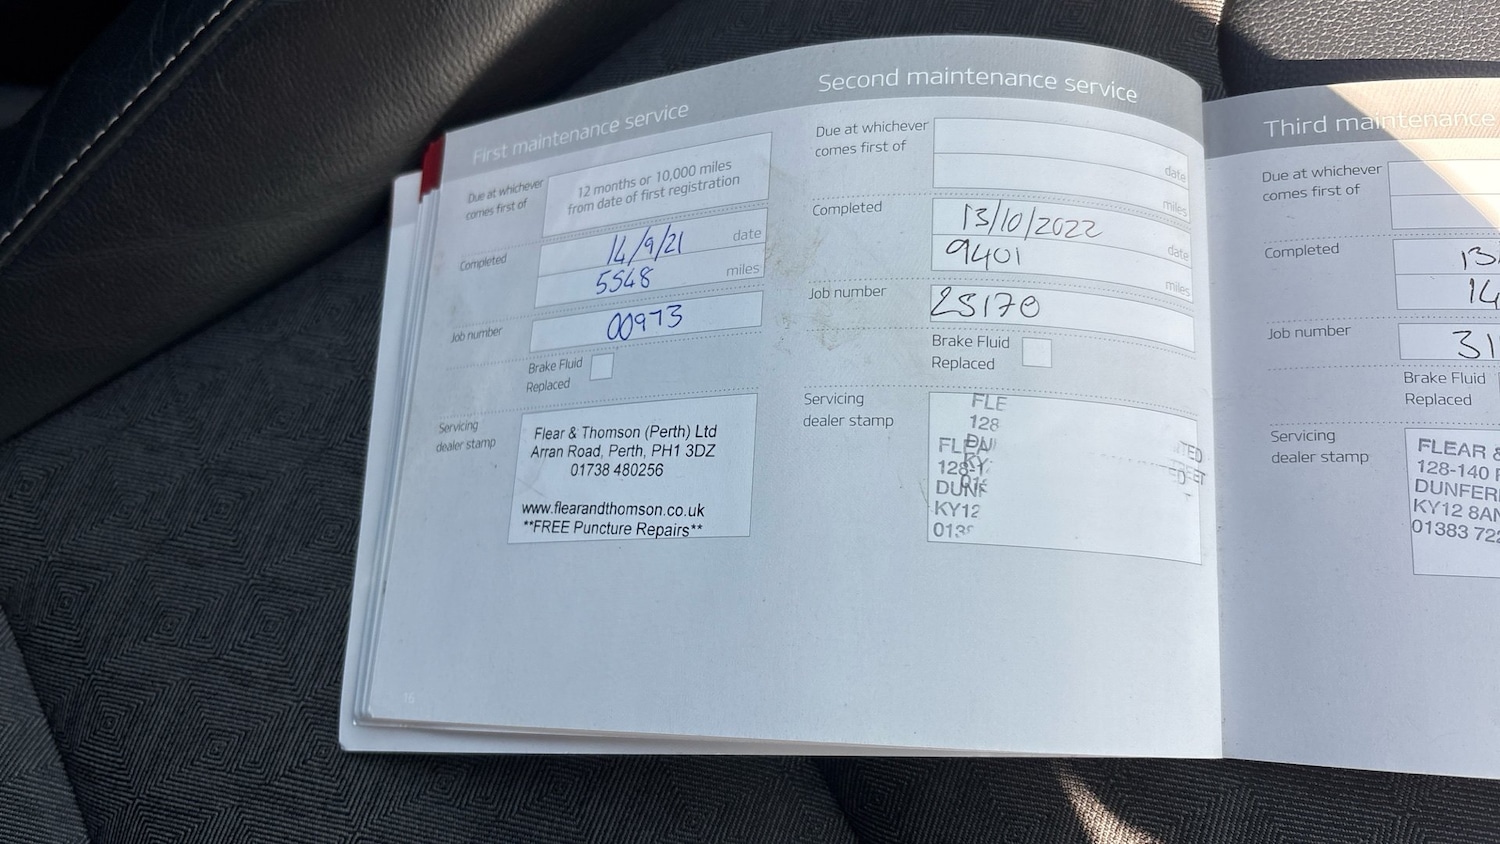 First maintenance service
Due at whichever
comes first of
12 months or 10,000 miles
from date of first registration
Completed
14/9/21 date
5548 miles
Job number
00973
Brake Fluid
Replaced
Servicing
dealer stamp
Flear & Thomson (Perth) Ltd
Arran Road, Perth, PH1 3DZ
01738 480256
www.flearandthomson.co.uk
**FREE Puncture Repairs**
16
Second maintenance service
Due at whichever
comes first of
date
miles
Completed
13/10/2022
date
9401
miles
Job number
25170
Brake Fluid
Replaced
Servicing
dealer stamp
FLE
128
KY
DUNF
KY12
Third maintenance
Due at whichever
comes first of
Completed
13
14
Job number
31
Brake Fluid
Replaced
Servicing
dealer stamp
FLEAR &
128-140
DUNFER
KY12 8AN
01383 72